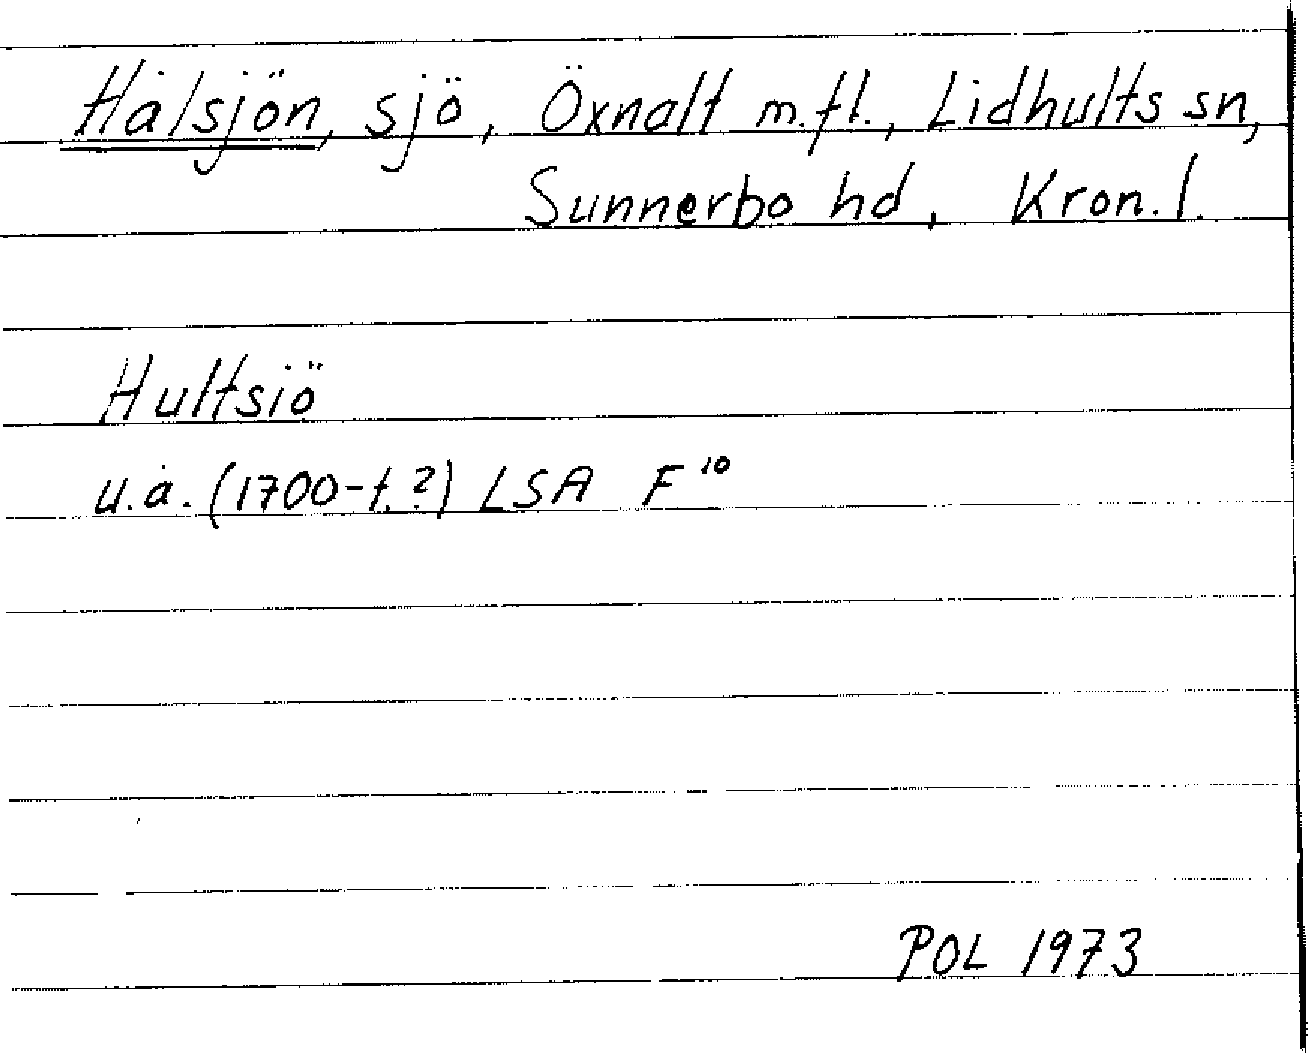 Hålsjön, sjö, Öxnalt m.fl., Lidhults sn,
Sunnerbo hd, Kron.l.
Hultsiö
u.å. (1700-t.?) LSA F¹⁰
POL 1973